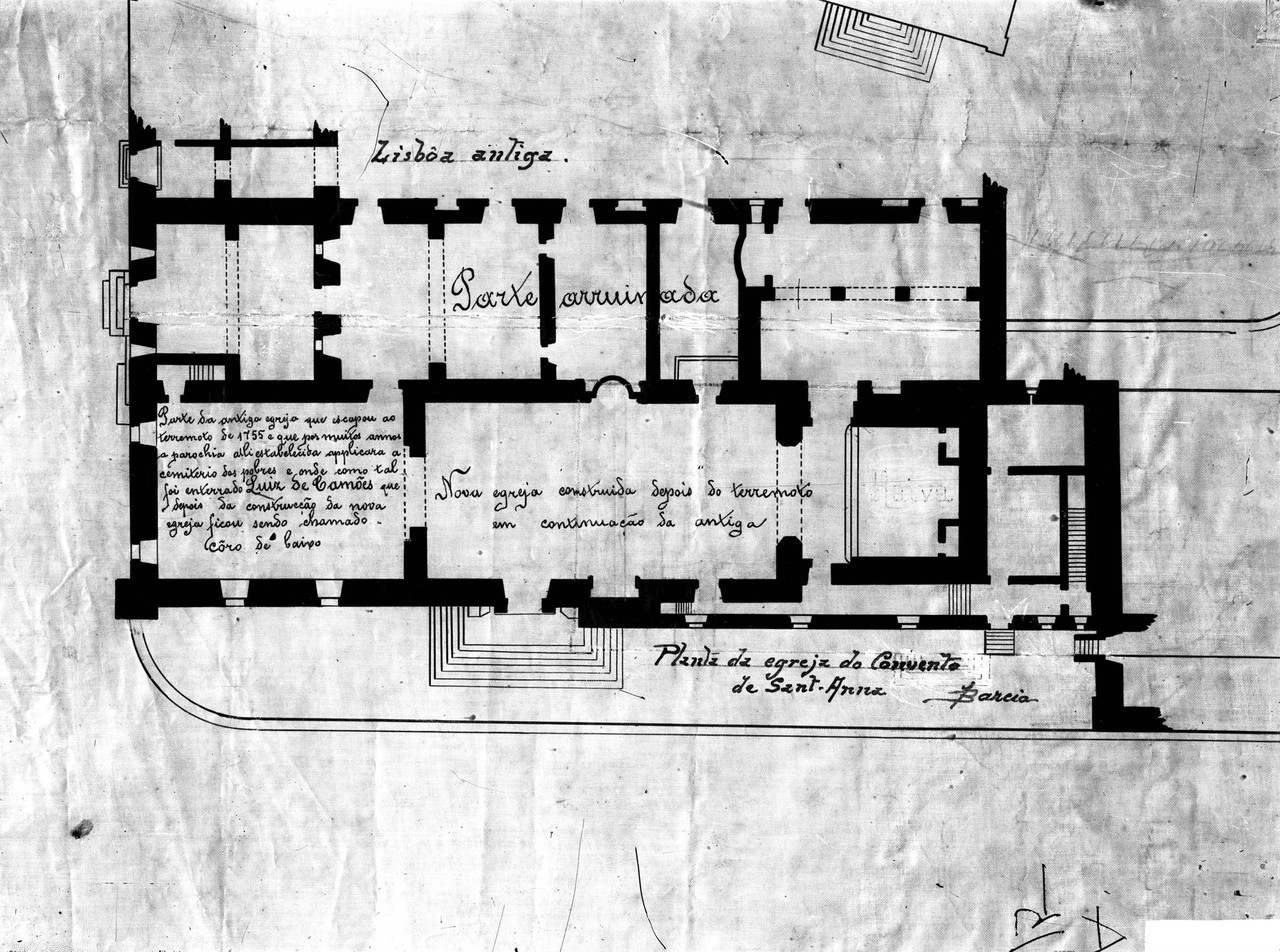 Lisbôa antiga.
Parte arruinada
Parte da antiga egreja que escapou ao
terremoto de 1755 e que por muitos annos
a parochia alli estabelecida applicara a
cemiterio dos pobres e onde como tal
foi enterrado Luiz de Camões que
depois da construcção da nova
egreja ficou sendo chamado -
côro de baixo
Nova egreja construida depois do terremoto
em continuação da antiga
Planta da egreja do Convento
de Sant-Anna
Barcia